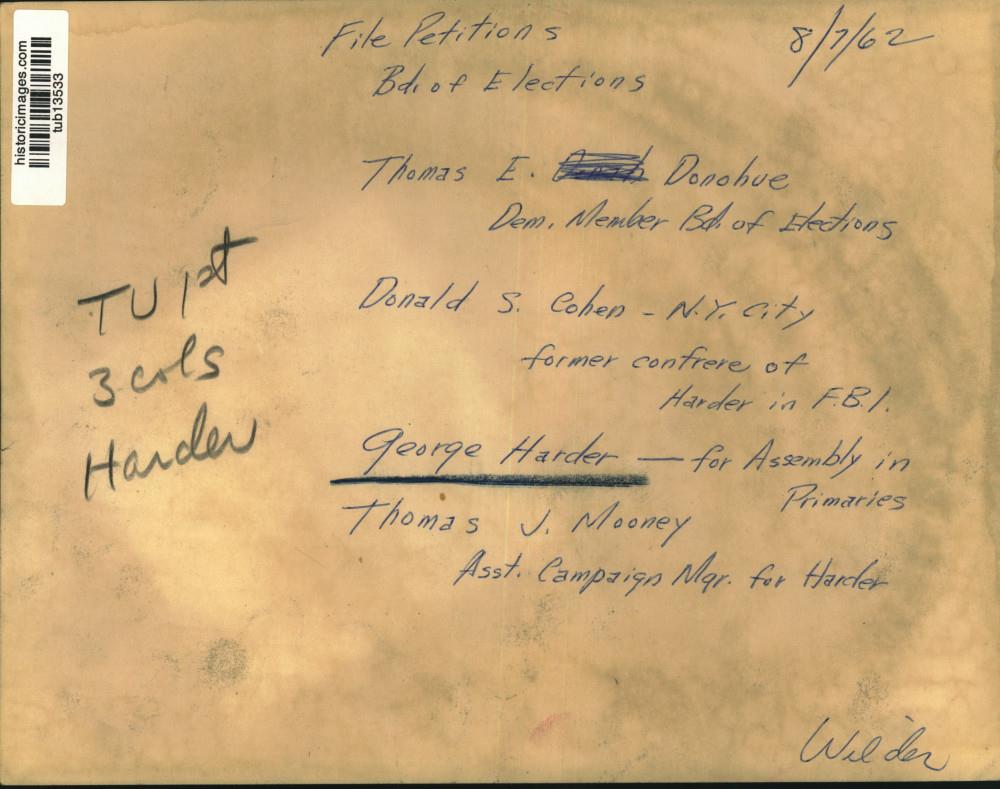 historicimages.com
tub13533
File Petitions
8/7/62
Bd. of Elections
Thomas E. Donohue
Dem. Member Bd. of Elections
Donald S. Cohen - N.Y. City
former confrere of
Harder in F.B.I.
George Harder — for Assembly in
Primaries
Thomas J. Mooney
Asst. Campaign Mgr. for Harder
TU 1st
3 cols
Harder
Wilder